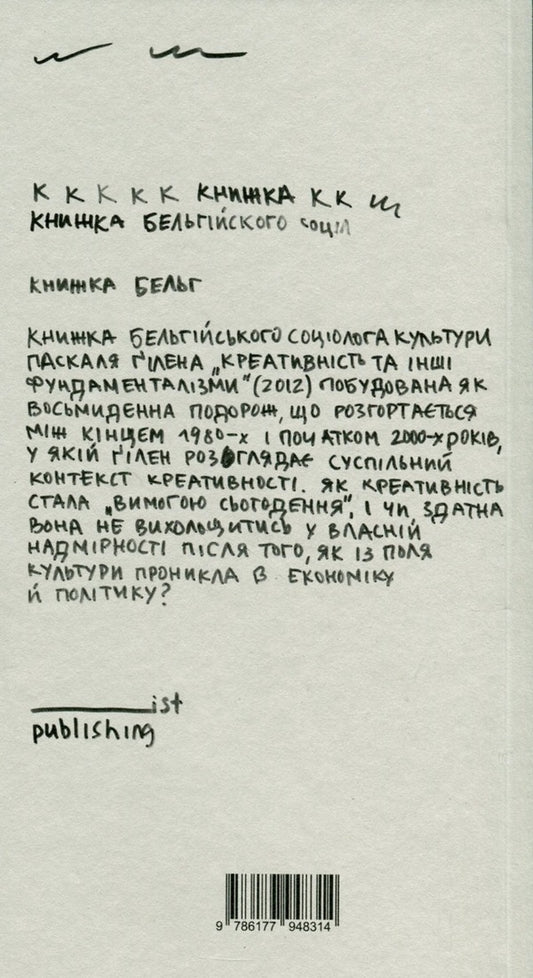 К К К К К КНИЖКА К К Ш
КНИЖКА БЕЛЬГІЙСКОГО СОЦІЛ
КНИЖКА БЕЛЬГ
КНИЖКА БЕЛЬГІЙСЬКОГО СОЦІОЛОГА КУЛЬТУРИ
ПАСКАЛЯ ҐІЛЕНА „КРЕАТИВНІСТЬ ТА ІНШІ
ФУНДАМЕНТАЛІЗМИ" (2012) ПОБУДОВАНА ЯК
ВОСЬМИДЕННА ПОДОРОЖ, ЩО РОЗГОРТАЄТЬСЯ
МІЖ КІНЦЕМ 1980-Х І ПОЧАТКОМ 2000-Х РОКІВ,
У ЯКІЙ ҐІЛЕН РОЗГЛЯДАЄ СУСПІЛЬНИЙ
КОНТЕКСТ КРЕАТИВНОСТІ. ЯК КРЕАТИВНІСТЬ
СТАЛА „ВИМОГОЮ СЬОГОДЕННЯ", І ЧИ ЗДАТНА
ВОНА НЕ ВИХОЛОЩИТИСЬ У ВЛАСНІЙ
НАДМІРНОСТІ ПІСЛЯ ТОГО, ЯК ІЗ ПОЛЯ
КУЛЬТУРИ ПРОНИКЛА В ЕКОНОМІКУ
Й ПОЛІТИКУ?
________ist
publishing
9 786177 948314